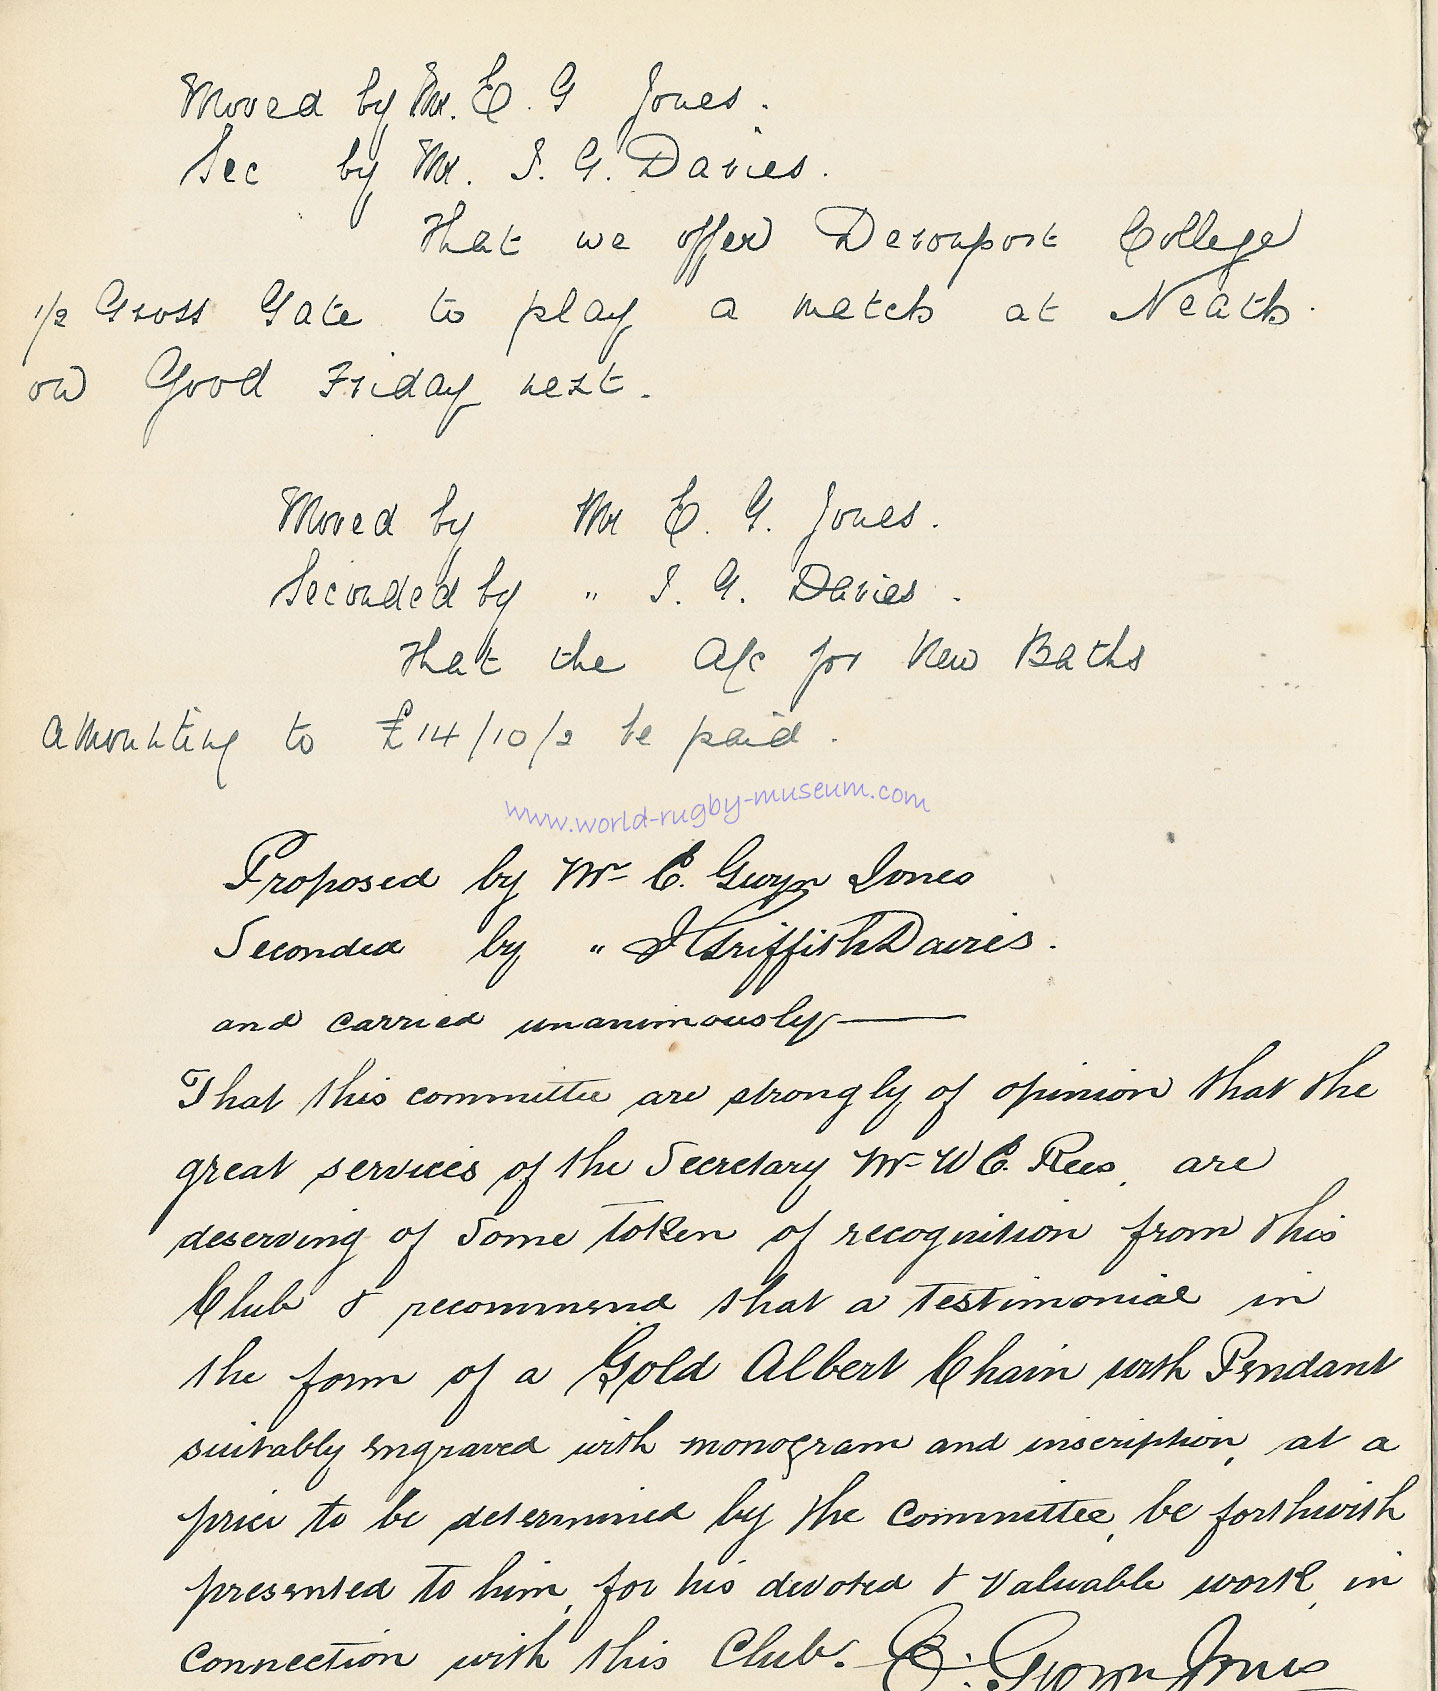 Moved by Mr. E. G Jones.
Sec by Mr. I. G. Davies.
that we offer Devonport College
1/2 Gross Gate to play a match at Neath.
on Good Friday next.
Moved by Mr E. G. Jones.
Seconded by " I. G. Davies.
that the A/c for New Baths
amounting to £14/10/2 be paid.
www.world-rugby-museum.com
Proposed by Mr E. Gwyn Jones
Seconded by " J Griffith Davies.
and carried unanimously —
That this committee are strongly of opinion that the
great services of the Secretary Mr W E. Rees, are
deserving of some token of recognition from this
Club & recommend that a testimonial in
the form of a Gold Albert Chain with Pendant
suitably engraved with monogram and inscription, at a
price to be determined by the committee, be forthwith
presented to him, for his devoted & valuable work, in
connection with this Club. E. Gwyn Jones